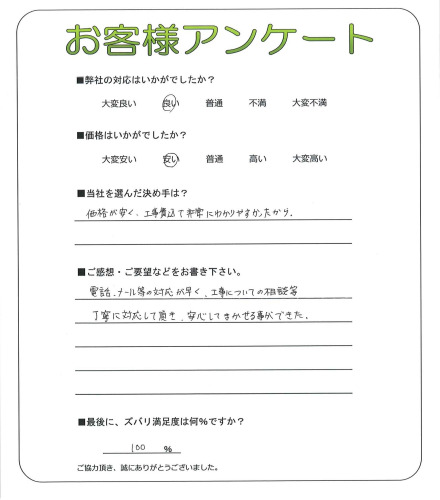 お客様アンケート
■弊社の対応はいかがでしたか？
大変良い 良い 普通 不満 大変不満
■価格はいかがでしたか？
大変安い 安い 普通 高い 大変高い
■当社を選んだ決め手は？
価格が安く、工事費込で非常にわかりやすかったから。
■ご感想・ご要望などをお書き下さい。
電話、メール等の対応が早く、工事についての相談等
丁寧に対応して頂き、安心してまかせる事ができた。
■最後に、ズバリ満足度は何%ですか？
100 %
ご協力頂き、誠にありがとうございました。